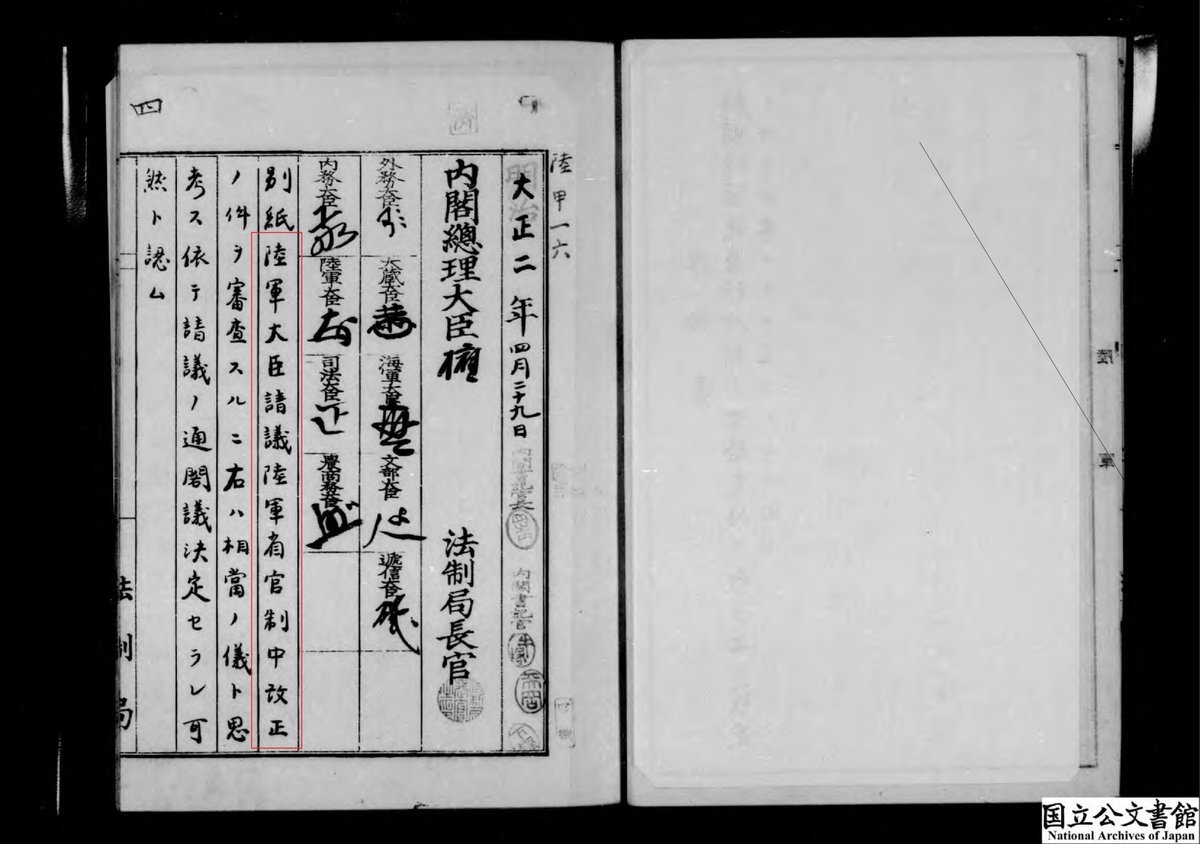 陸軍
陸甲一六
明治
大正二年四月二十九日
内閣書記官長
内閣書記官
内閣總理大臣
法制局長官
外務大臣
大藏大臣
海軍大臣
文部大臣
遞信大臣
内務大臣
陸軍大臣
司法大臣
農商務大臣
別紙陸軍大臣請議陸軍省官制中改正
ノ件ヲ審査スルニ右ハ相當ノ儀ト思
考ス依テ請議ノ通閣議決定セラレ可
然ト認ム
法制局
四
国立公文書館
National Archives of Japan